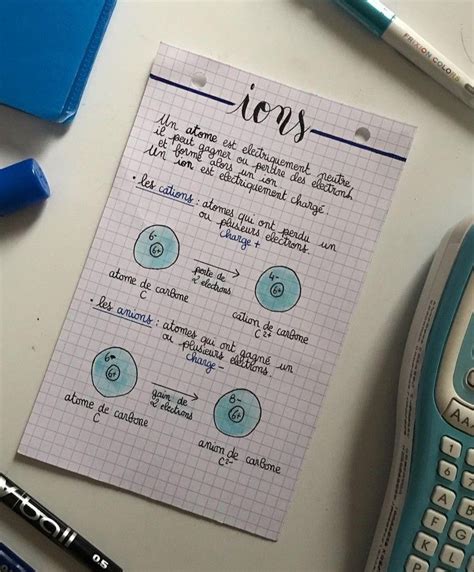 ions
Un atome est electriquement neutre,
il peut gagner ou perdre des electrons
et forme alors un ion.
Un ion est electriquement chargé.
• les cations : atomes qui ont perdu un
ou plusieurs electrons.
charge +
6-
6+
perte de
2 electrons
4-
6+
atome de carbone
C
cation de carbone
C²⁺
• les anions : atomes qui ont gagné un
ou plusieurs electrons.
charge -
6-
6+
gain de
2 electrons
8-
6+
atome de carbone
C
anion de carbone
C²⁻
FRIXION COLORS
ball
0.5
1
4
7